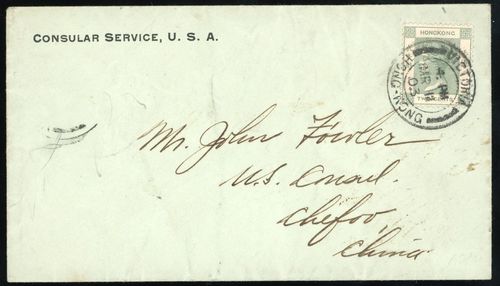 CONSULAR SERVICE, U. S. A.
HONGKONG
VICTORIA
HONG-KONG
MR
03
TWO CENTS
Mr. John Fowler
U.S. Consul.
Chefoo,
China